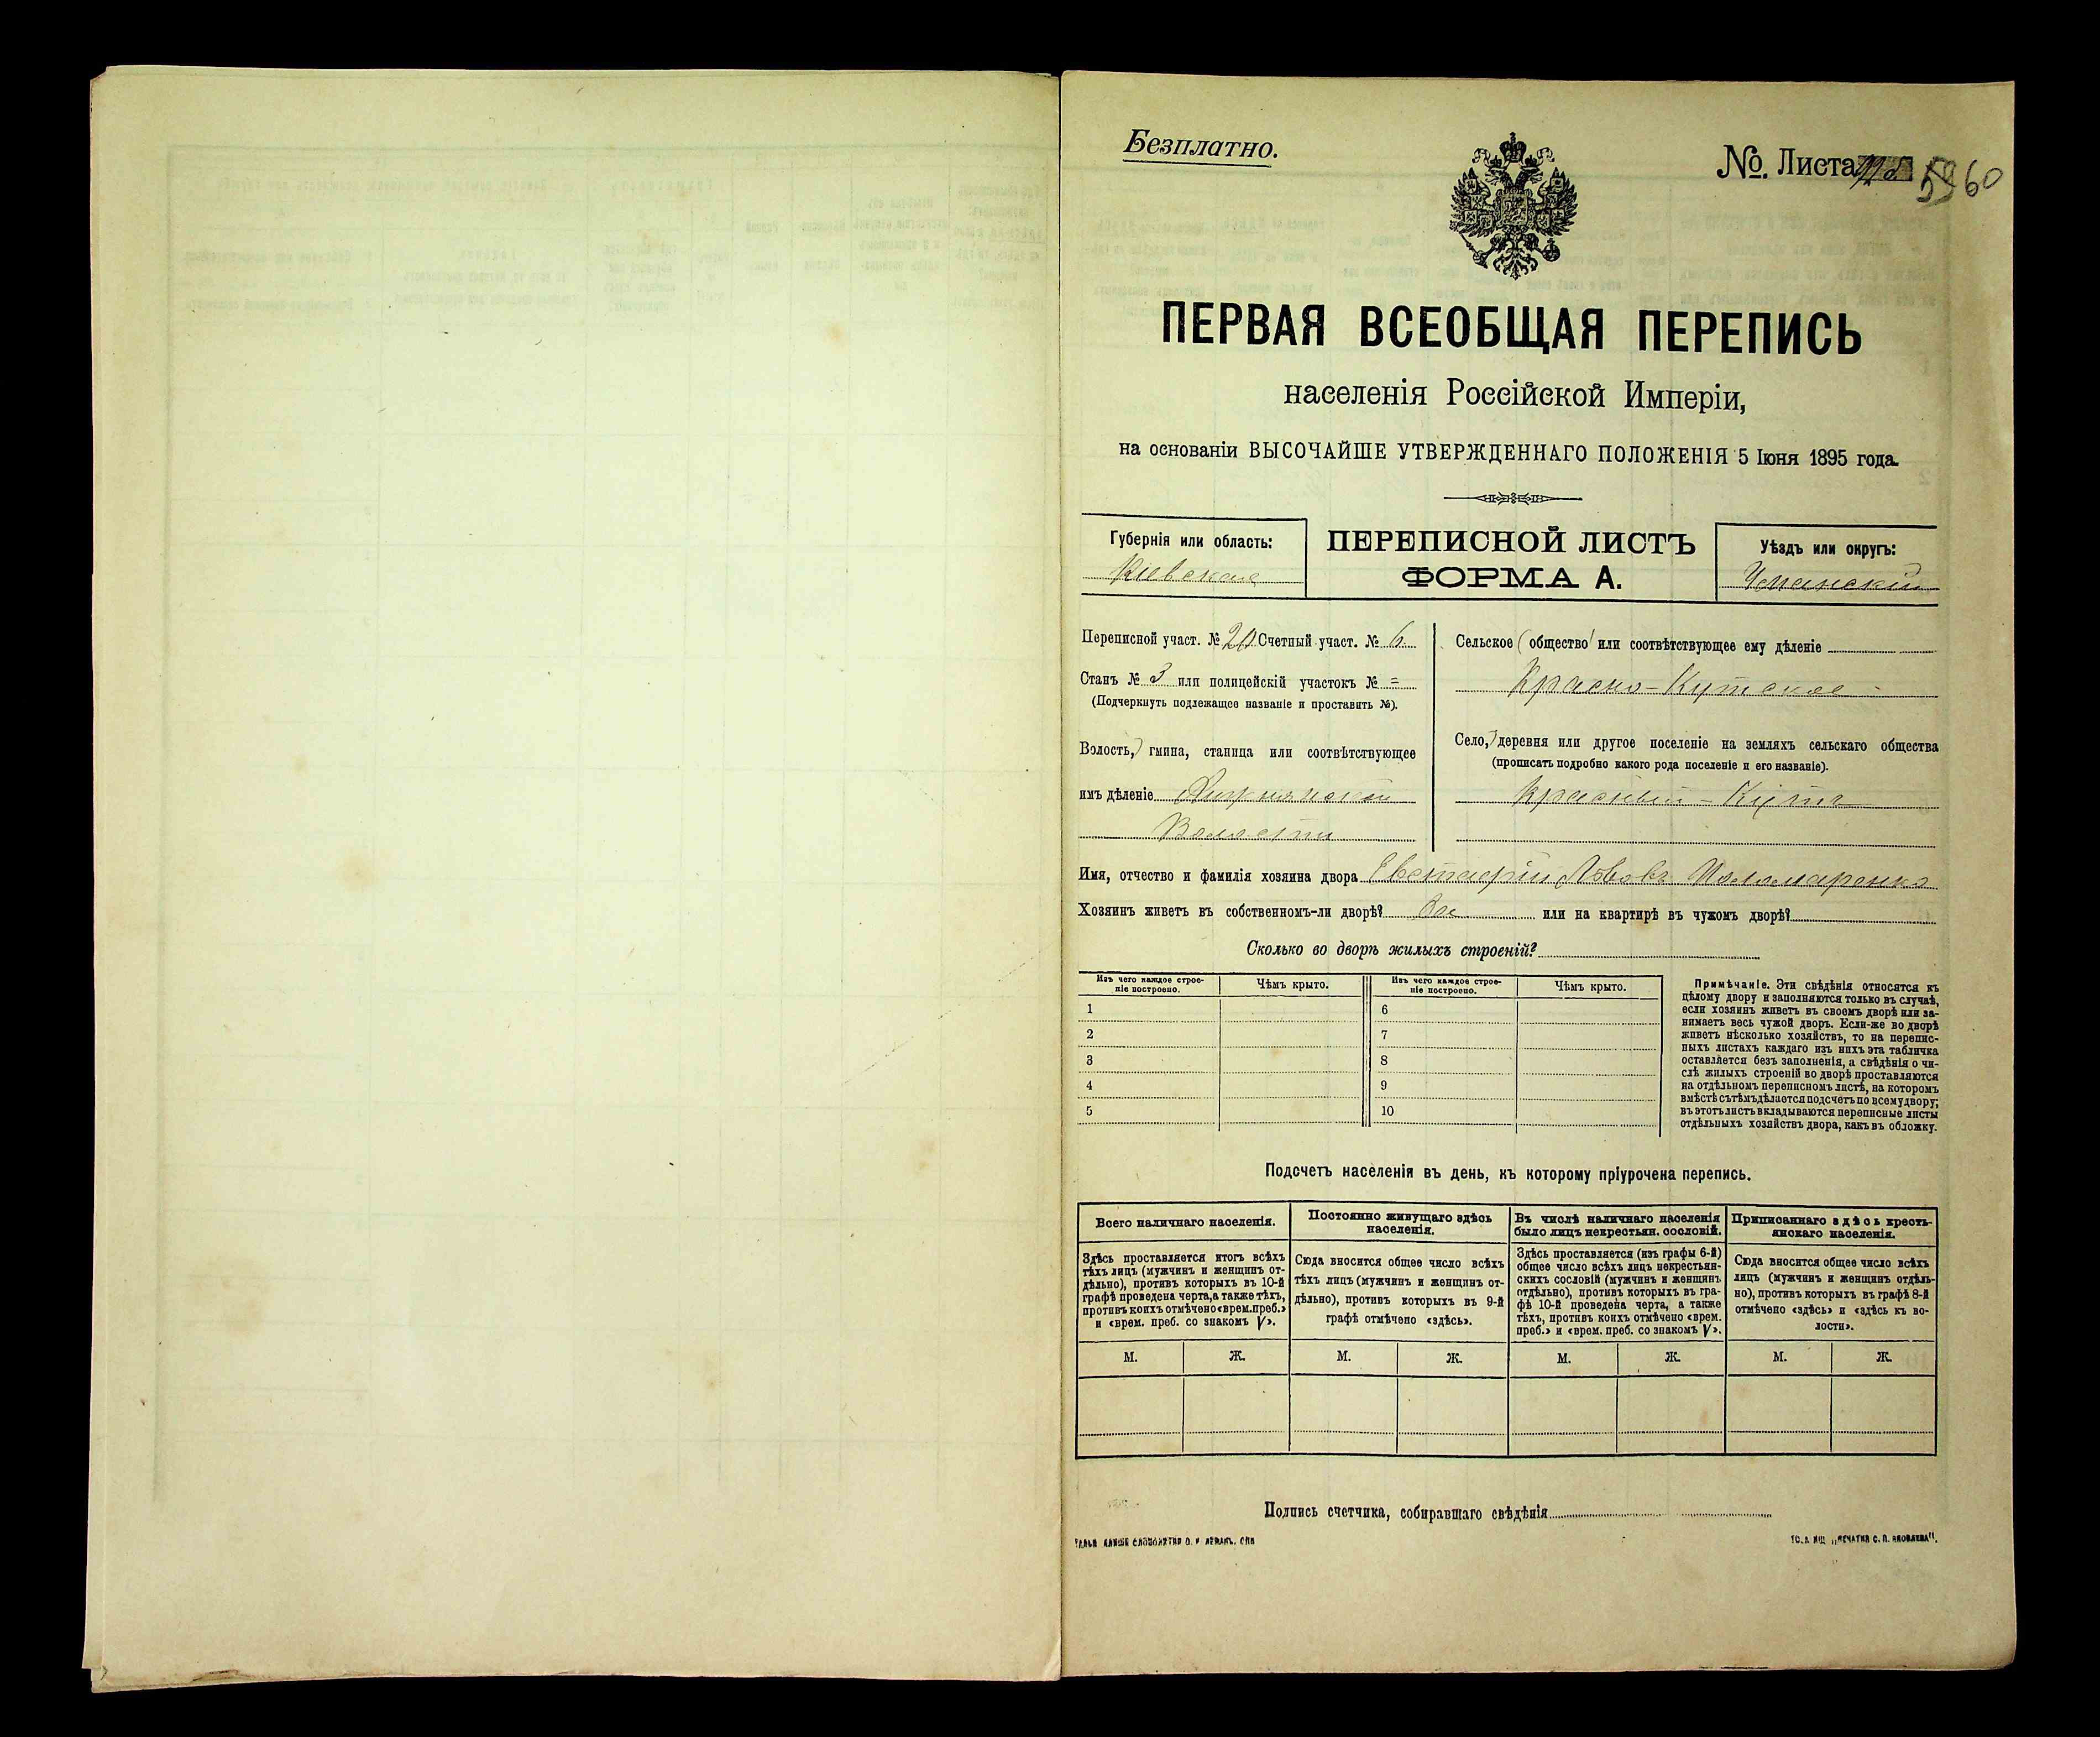 Безплатно.
№. Листа 60
ПЕРВАЯ ВСЕОБЩАЯ ПЕРЕПИСЬ
населенія Россійской Имперіи,
на основаніи ВЫСОЧАЙШЕ УТВЕРЖДЕННАГО ПОЛОЖЕНІЯ 5 Іюня 1895 года.
Губернія или область:
Кіевская
ПЕРЕПИСНОЙ ЛИСТЪ
ФОРМА А.
Уѣздъ или округъ:
Уманскій
Переписной участ. № 20 Счетный участ. № 6
Станъ № 3 или полицейскій участокъ № =
(Подчеркнуть подлежащее названіе и проставить №).
Волость, гмина, станица или соотвѣтствующее
имъ дѣленіе
Волости
Сельское общество или соотвѣтствующее ему дѣленіе
Красно-Кутское
Село, деревня или другое поселеніе на земляхъ сельскаго общества
(прописать подробно какого рода поселеніе и его названіе).
Красный-Кутъ
Имя, отчество и фамилія хозяина двора Евстафій Львовъ Паламаренко
Хозяинъ живетъ въ собственномъ-ли дворѣ? или на квартирѣ въ чужомъ дворѣ?
Сколько во дворѣ жилыхъ строеній?
Изъ чего каждое строе-
ніе построено.
Чѣмъ крыто.
Изъ чего каждое строе-
ніе построено.
Чѣмъ крыто.
1 6
2 7
3 8
4 9
5 10
Примѣчаніе. Эти свѣдѣнія относятся къ
цѣлому двору и заполняются только въ случаѣ,
если хозяинъ живетъ въ своемъ дворѣ или за-
нимаетъ весь чужой дворъ. Если-же во дворѣ
живетъ нѣсколько хозяйствъ, то на перепис-
ныхъ листахъ каждаго изъ нихъ эта табличка
оставляется безъ заполненія, а свѣдѣнія о чи-
слѣ жилыхъ строеній во дворѣ проставляются
на отдѣльномъ переписномъ листѣ, на которомъ
вмѣстѣ сътѣмъ дѣлается подсчетъ по всему двору;
въ этотъ листъ вкладываются переписные листы
отдѣльныхъ хозяйствъ двора, какъ въ обложку.
Подсчетъ населенія въ день, къ которому пріурочена перепись.
Всего наличнаго населенія.
Здѣсь проставляется итогъ всѣхъ
тѣхъ лицъ (мужчинъ и женщинъ от-
дѣльно), противъ которыхъ въ 10-й
графѣ проведена черта, а также тѣхъ,
противъ коихъ отмѣчено «врем. преб.»
и «врем. преб. со знакомъ V».
Постоянно живущаго здѣсь
населенія.
Сюда вносится общее число всѣхъ
тѣхъ лицъ (мужчинъ и женщинъ от-
дѣльно), противъ которыхъ въ 9-й
графѣ отмѣчено «здѣсь».
Въ числѣ наличнаго населенія
было лицъ некрестьян. сословій.
Здѣсь проставляется (изъ графы 6-й)
общее число всѣхъ лицъ некрестьян-
скихъ сословій (мужчинъ и женщинъ
отдѣльно), противъ которыхъ въ гра-
фѣ 10-й проведена черта, а также
тѣхъ, противъ коихъ отмѣчено «врем.
преб.» и «врем. преб. со знакомъ V».
Приписаннаго здѣсь кресть-
янскаго населенія.
Сюда вносится общее число всѣхъ
лицъ (мужчинъ и женщинъ отдѣль-
но), противъ которыхъ въ графѣ 8-й
отмѣчено «здѣсь» и «здѣсь къ во-
лости».
М. Ж. М. Ж. М. Ж. М. Ж.
Подпись счетчика, собиравшаго свѣдѣнія